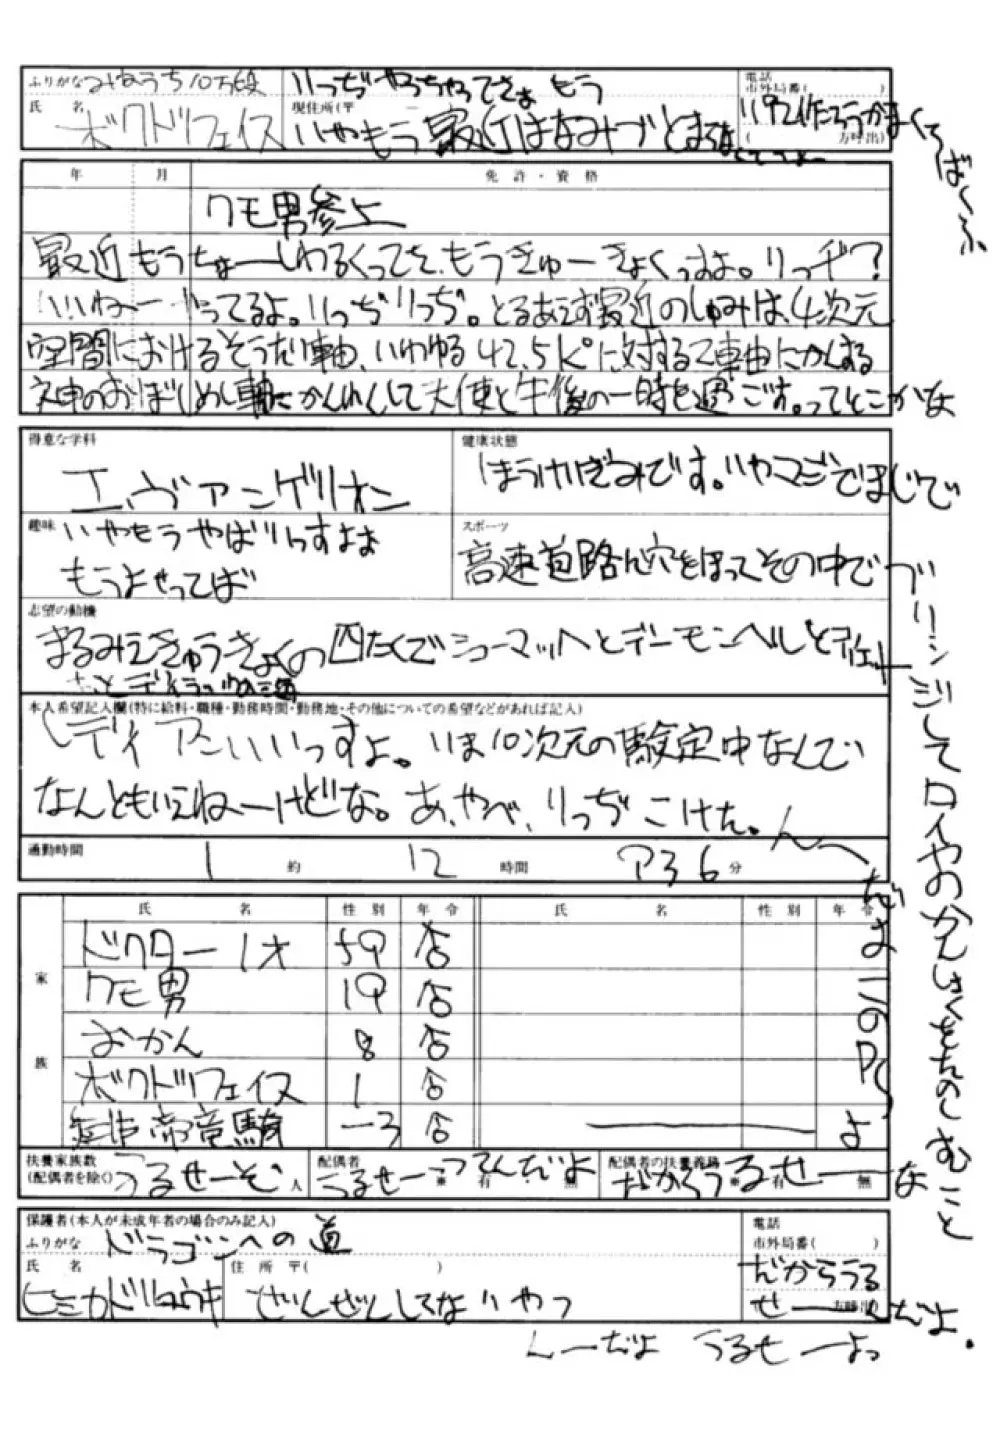 ふりがな みねうち10万段
りっぢやっちゃてさぁ もう
電話
市外局番( )
氏 名 ボクドリフェイス
現住所(〒 ―
いやもう最近はなみづとまらな
(方呼出)
くてっよー
まくてばくふ
年 月 免許・資格
クモ男参上
最近もうちょーしわるくってさ、もうきゅーきょくっすよ。りっヂ?
いいねー やってるよ。りっぢりっぢ。とるあえず最近のしゅみは、4次元
空間におけるそうたい軸、いわゆる42.5K°に対するZ軸にかんする
神のおぼしめし軸にかんれんして天使と午後の一時を過ごす。ってとこかな
得意な学科
エヴァンゲリオン
健康状態
ほうけいぎみです。いやマジでまじで
趣味 いやもうやばいっすよまぁ
もうよせってば
スポーツ
高速道路に穴をほってその中で
ブリッジしてロイやおかんしゃくをたのしむこと
志望の動機
まるみえきゅうきょくの四たくでシューマッハとデーモンヘルと
本人希望記入欄(特に給料・職種・勤務時間・勤務地・その他についての希望などがあれば記入)
レディアンいいっすよ。いま10次元の験定中なんで
なんともいえねーけどな。あ、やべ、りっぢこけた。
んーだよこのPCよ
通勤時間 1 約 12 時間 アろ6 分
氏 名 性別 年令 氏 名 性別 年令
家族
ドクター1才 59  合
クモ男 19 合
おかん 8 合
ボクドリフェイス 1 合
帝竜騎 -3 合
扶養家族数
(配偶者を除く) うるせーぞ 人
配偶者
うるせーってんだよ ※ 有 無
配偶者の扶養義務
だからうるせーな ※ 有 無
保護者(本人が未成年者の場合のみ記入)
ふりがな ドラゴンへの道
電話
市外局番( )
氏 名
ヒミカドリュウキ
住所 〒( )
ぜんぜんしてないやつ
だからうる
せーんだよ.
方呼出)
んーだよ うるせーよっ